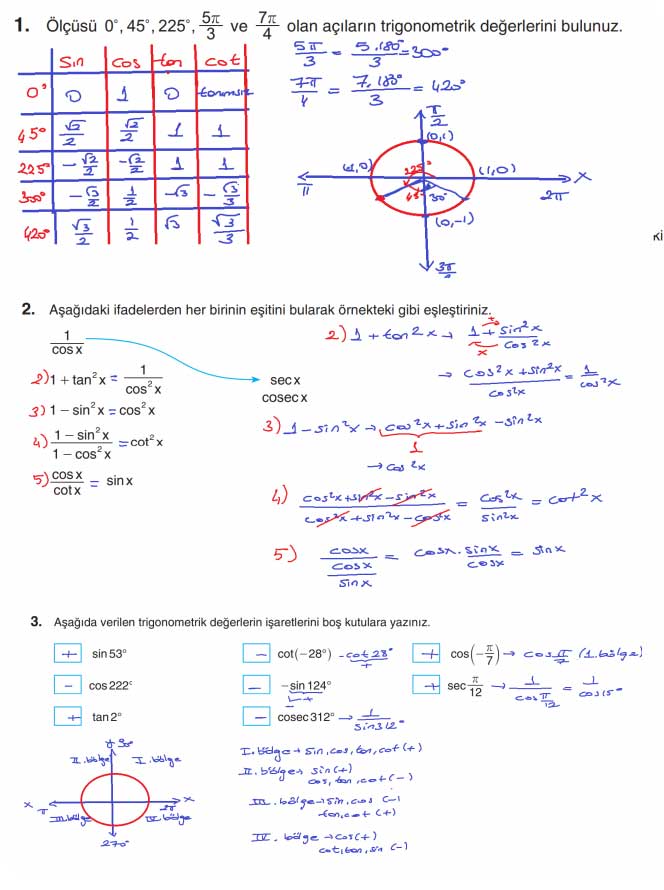 1. Ölçüsü 0°, 45°, 225°, 5π/3 ve 7π/4 olan açıların trigonometrik değerlerini bulunuz.
5π/3 = 5.180°/3 = 300°
7π/4 = 7.180°/3 = 420°
sin cos tan cot
0° 0 1 0 tanımsız
45° √2/2 √2/2 1 1
225° -√2/2 -√2/2 1 1
300° -√3/2 1/2 -√3 -√3/3
420° √3/2 1/2 √3 √3/3
π/2
(0,1)
(1,0) 225° (1,0) x
π 45° 30° 2π
(0,-1)
3π/2
Ki
2. Aşağıdaki ifadelerden her birinin eşitini bularak örnekteki gibi eşleştiriniz.
1/cos x
sec x
cosec x
2) 1 + tan²x = 1/cos²x
3) 1 − sin²x = cos²x
4) (1 − sin²x)/(1 − cos²x) = cot²x
5) cos x/cot x = sin x
2) 1 + tan²x → 1 + sin²x/cos²x
x
→ (cos²x + sin²x)/cos²x = 1/cos²x
3) 1 - sin²x → cos²x + sin²x - sin²x
1
→ cos²x
4) (cos²x + sin²x - sin²x)/(cos²x + sin²x - cos²x) = cos²x/sin²x = cot²x
5) cosx/(cosx/sinx) = cosx . sinx/cosx = sinx
3. Aşağıda verilen trigonometrik değerlerin işaretlerini boş kutulara yazınız.
+ sin 53° − cot(−28°) -cot 28° + + cos(−π/7) → cos π/7 (1. bölge)
- cos 222° − −sin 124° + + sec π/12 → 1/cos π/12 = 1/cos 15°
+ tan 2° − cosec 312° → 1/sin 312°
90°
II. bölge I. bölge
x π 2π x
III. bölge IV. bölge
270°
I. bölge → sin, cos, tan, cot (+)
II. bölge → sin (+)
cos, tan, cot (-)
III. bölge → sin, cos (-)
tan, cot (+)
IV. bölge → cos (+)
cot, tan, sin (-)